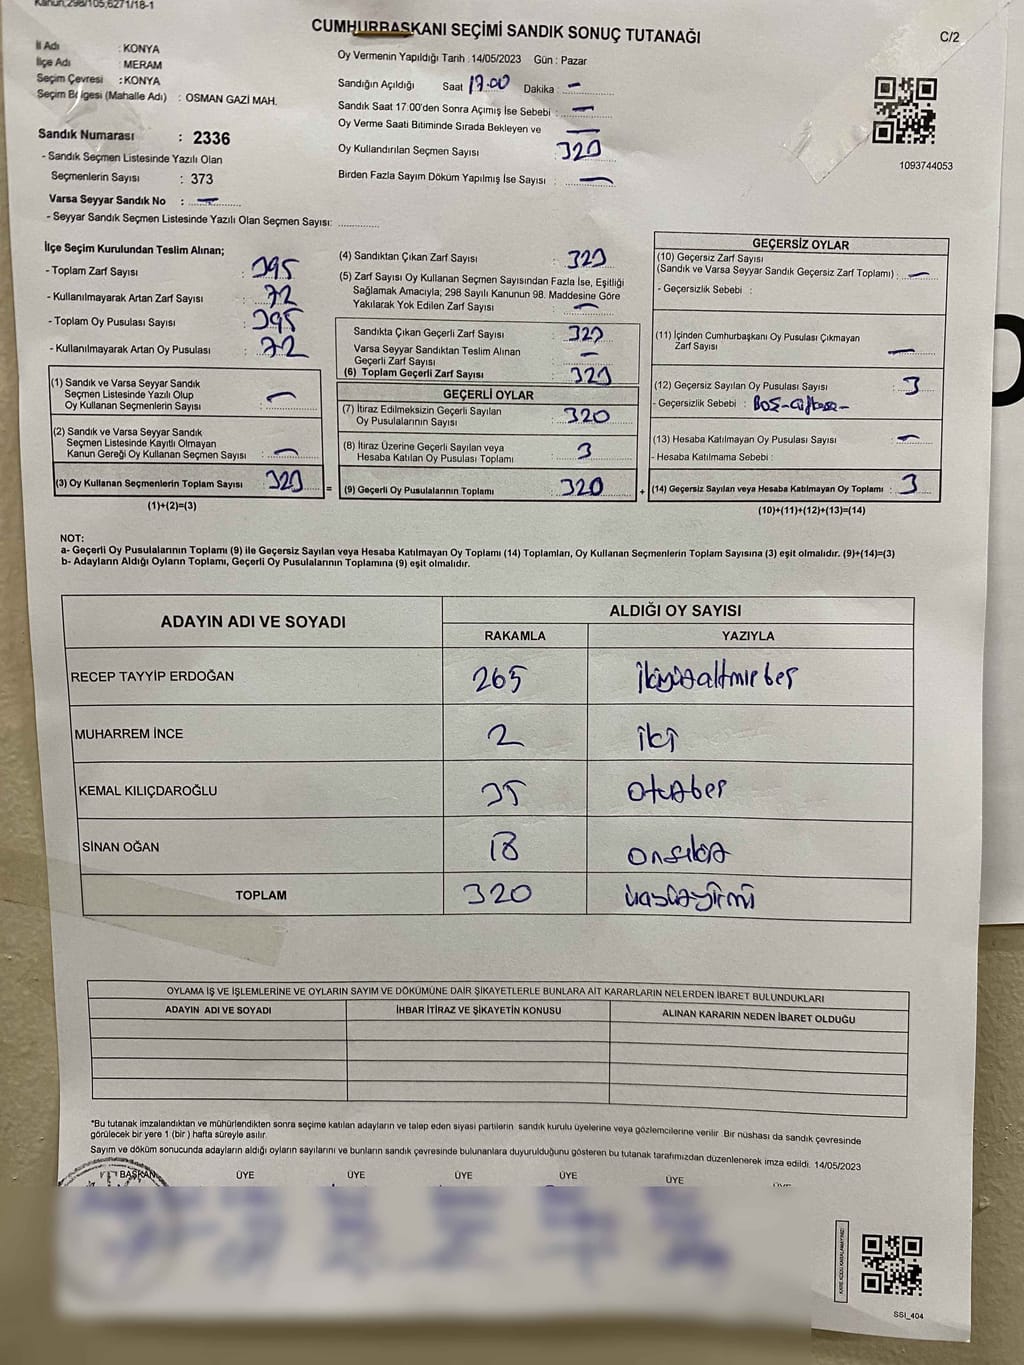 Kanun;298/105,6271/18-1
CUMHURBAŞKANI SEÇİMİ SANDIK SONUÇ TUTANAĞI
C/2
İl Adı : KONYA
İlçe Adı : MERAM
Seçim Çevresi : KONYA
Seçim Bölgesi (Mahalle Adı) : OSMAN GAZİ MAH.
Sandık Numarası : 2336
- Sandık Seçmen Listesinde Yazılı Olan
Seçmenlerin Sayısı : 373
Varsa Seyyar Sandık No : —
- Seyyar Sandık Seçmen Listesinde Yazılı Olan Seçmen Sayısı: ..............
Oy Vermenin Yapıldığı Tarih :14/05/2023 Gün : Pazar
Sandığın Açıldığı Saat 17.00 Dakika : —
Sandık Saat 17:00'den Sonra Açımış İse Sebebi : —
Oy Verme Saati Bitiminde Sırada Bekleyen ve —
Oy Kullandırılan Seçmen Sayısı : 323
Birden Fazla Sayım Döküm Yapılmış İse Sayısı : —
1093744053
İlçe Seçim Kurulundan Teslim Alınan;
- Toplam Zarf Sayısı : 395
- Kullanılmayarak Artan Zarf Sayısı : 72
- Toplam Oy Pusulası Sayısı : 395
- Kullanılmayarak Artan Oy Pusulası : 72
(1) Sandık ve Varsa Seyyar Sandık
Seçmen Listesinde Yazılı Olup
Oy Kullanan Seçmenlerin Sayısı : —
(2) Sandık ve Varsa Seyyar Sandık
Seçmen Listesinde Kayıtlı Olmayan
Kanun Gereği Oy Kullanan Seçmen Sayısı : —
(3) Oy Kullanan Seçmenlerin Toplam Sayısı : 323
(1)+(2)=(3)
(4) Sandıktan Çıkan Zarf Sayısı : 323
(5) Zarf Sayısı Oy Kullanan Seçmen Sayısından Fazla İse, Eşitliği
Sağlamak Amacıyla; 298 Sayılı Kanunun 98. Maddesine Göre
Yakılarak Yok Edilen Zarf Sayısı : —
Sandıkta Çıkan Geçerli Zarf Sayısı : 323
Varsa Seyyar Sandıktan Teslim Alınan
Geçerli Zarf Sayısı : —
(6) Toplam Geçerli Zarf Sayısı : 323
GEÇERLİ OYLAR
(7) İtiraz Edilmeksizin Geçerli Sayılan
Oy Pusulalarının Sayısı : 320
(8) İtiraz Üzerine Geçerli Sayılan veya
Hesaba Katılan Oy Pusulası Toplamı : 3
= (9) Geçerli Oy Pusulalarının Toplamı : 320
GEÇERSİZ OYLAR
(10) Geçersiz Zarf Sayısı
(Sandık ve Varsa Seyyar Sandık Geçersiz Zarf Toplamı) : —
- Geçersizlik Sebebi :
(11) İçinden Cumhurbaşkanı Oy Pusulası Çıkmayan
Zarf Sayısı : —
(12) Geçersiz Sayılan Oy Pusulası Sayısı : 3
- Geçersizlik Sebebi : Boş-
(13) Hesaba Katılmayan Oy Pusulası Sayısı : —
- Hesaba Katılmama Sebebi :
+ (14) Geçersiz Sayılan veya Hesaba Katılmayan Oy Toplamı : 3
(10)+(11)+(12)+(13)=(14)
NOT:
a- Geçerli Oy Pusulalarının Toplamı (9) ile Geçersiz Sayılan veya Hesaba Katılmayan Oy Toplamı (14) Toplamları, Oy Kullanan Seçmenlerin Toplam Sayısına (3) eşit olmalıdır. (9)+(14)=(3)
b- Adayların Aldığı Oyların Toplamı, Geçerli Oy Pusulalarının Toplamına (9) eşit olmalıdır.
ADAYIN ADI VE SOYADI
ALDIĞI OY SAYISI
RAKAMLA YAZIYLA
RECEP TAYYİP ERDOĞAN 265 ikiyüzaltmışbeş
MUHARREM İNCE 2 iki
KEMAL KILIÇDAROĞLU 35 otuzbeş
SİNAN OĞAN 18 onsekiz
TOPLAM 320 üçyüzyirmi
OYLAMA İŞ VE İŞLEMLERİNE VE OYLARIN SAYIM VE DÖKÜMÜNE DAİR ŞİKAYETLERLE BUNLARA AİT KARARLARIN NELERDEN İBARET BULUNDUKLARI
ADAYIN ADI VE SOYADI İHBAR İTİRAZ VE ŞİKAYETİN KONUSU ALINAN KARARIN NEDEN İBARET OLDUĞU
*Bu tutanak imzalandıktan ve mühürlendikten sonra seçime katılan adayların ve talep eden siyasi partilerin sandık kurulu üyelerine veya gözlemcilerine verilir. Bir nüshası da sandık çevresinde
görülecek bir yere 1 (bir ) hafta süreyle asılır.
Sayım ve döküm sonucunda adayların aldığı oyların sayılarını ve bunların sandık çevresinde bulunanlara duyurulduğunu gösteren bu tutanak tarafımızdan düzenlenerek imza edildi. 14/05/2023
BAŞKAN ÜYE ÜYE ÜYE ÜYE ÜYE ÜYE
SSI_404